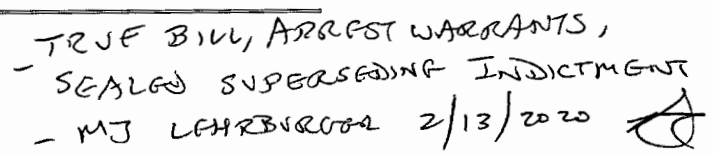 - TRUE BILL, ARREST WARRANTS,
SEALED SUPERSEDING INDICTMENT
- MJ LEHRBURGER 2/13/2020